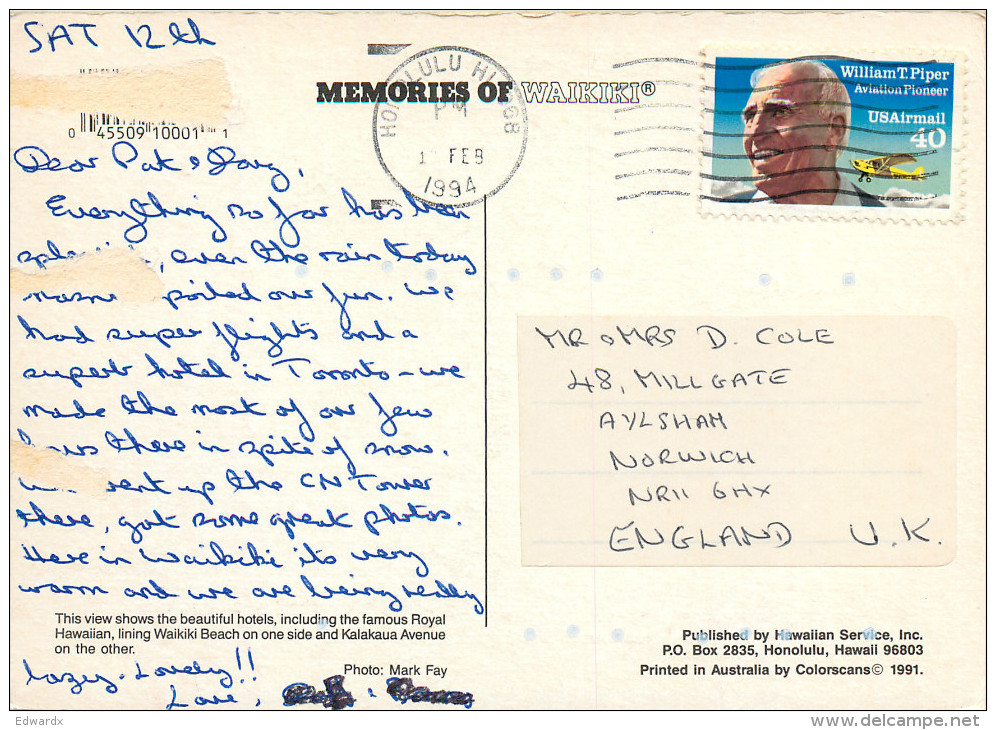 SAT 12th
MEMORIES OF WAIKIKI®
HONOLULU HI 968
PM
1 FEB
1994
William T. Piper
Aviation Pioneer
USAirmail
40
0 45509 10001 1
Dear Pat &
Everything so far has been
, even the rain today
our fun. We
had super flights and a
superb hotel in Toronto - we
made the most of our few
there in spite of snow.
went up the CN Tower
there, got some great photos.
Here in Waikiki its very
warm and we are being really
lazy. Lovely!!
Love,
MR & MRS D. COLE
48, MILLGATE
AYLSHAM
NORWICH
NR11 6HX
ENGLAND U.K.
This view shows the beautiful hotels, including the famous Royal
Hawaiian, lining Waikiki Beach on one side and Kalakaua Avenue
on the other.
Photo: Mark Fay
Published by Hawaiian Service, Inc.
P.O. Box 2835, Honolulu, Hawaii 96803
Printed in Australia by Colorscans© 1991.
Edwardx
delcampe.net